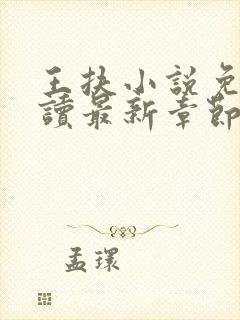 王扶小說免
讀最新章節
孟環